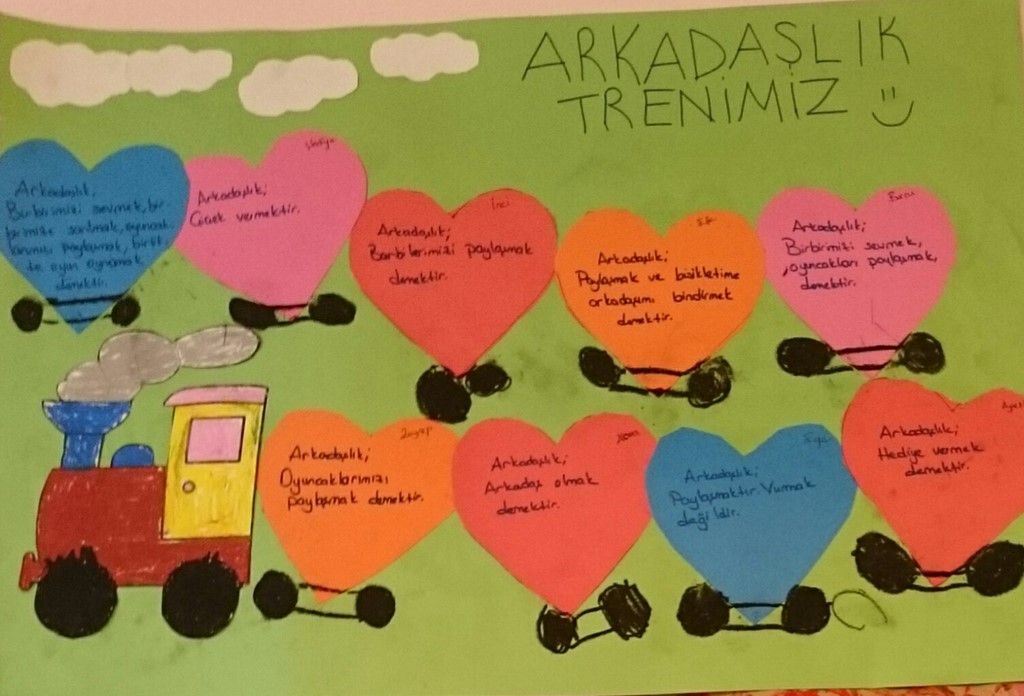 ARKADAŞLIK
TRENİMİZ
Arkadaşlık;
Birbirimizi sevmek, bir-
birimize sarılmak, oyuncak-
larımızı paylaşmak, birlik-
te oyun oynamak
demektir.
Arkadaşlık;
Çiçek vermektir.
İnci
Arkadaşlık;
Barbilerimizi paylaşmak
demektir.
Elif
Arkadaşlık;
Paylaşmak ve bisikletime
arkadaşımı bindirmek
demektir.
Arkadaşlık;
Birbirimizi sevmek,
oyuncakları paylaşmak,
demektir.
Zeynep
Arkadaşlık;
Oyuncaklarımızı
paylaşmak demektir.
Arkadaşlık;
Arkadaş olmak
demektir.
Arkadaşlık;
Paylaşmaktır. Vurmak
değildir.
Arkadaşlık;
Hediye vermek
demektir.